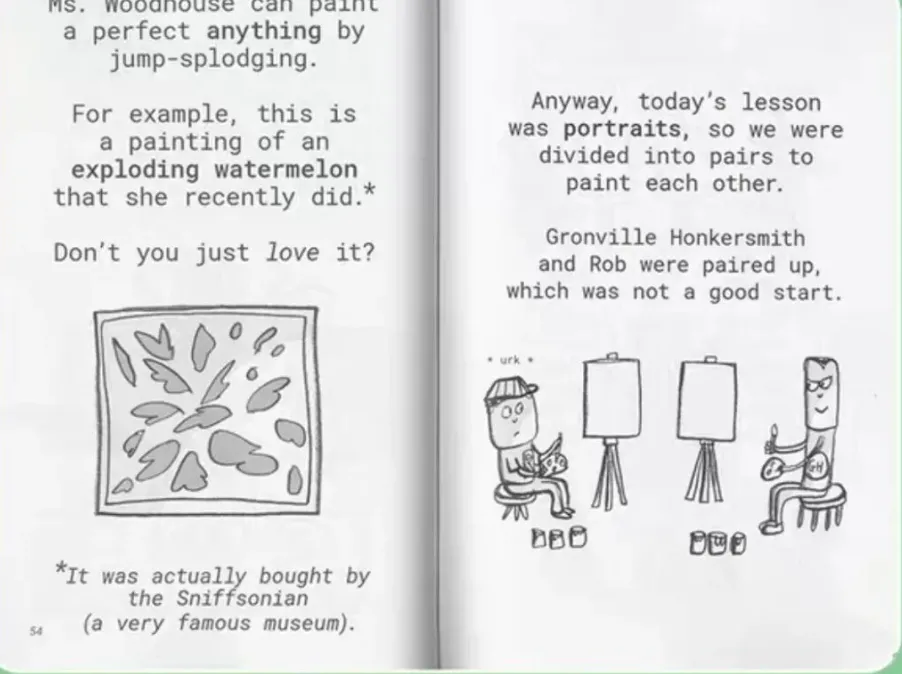 Ms. Woodhouse can paint
a perfect anything by
jump-splodging.
For example, this is
a painting of an
exploding watermelon
that she recently did.*
Don't you just love it?
*It was actually bought by
the Sniffsonian
(a very famous museum).
54
Anyway, today's lesson
was portraits, so we were
divided into pairs to
paint each other.
Gronville Honkersmith
and Rob were paired up,
which was not a good start.
* urk *
GH